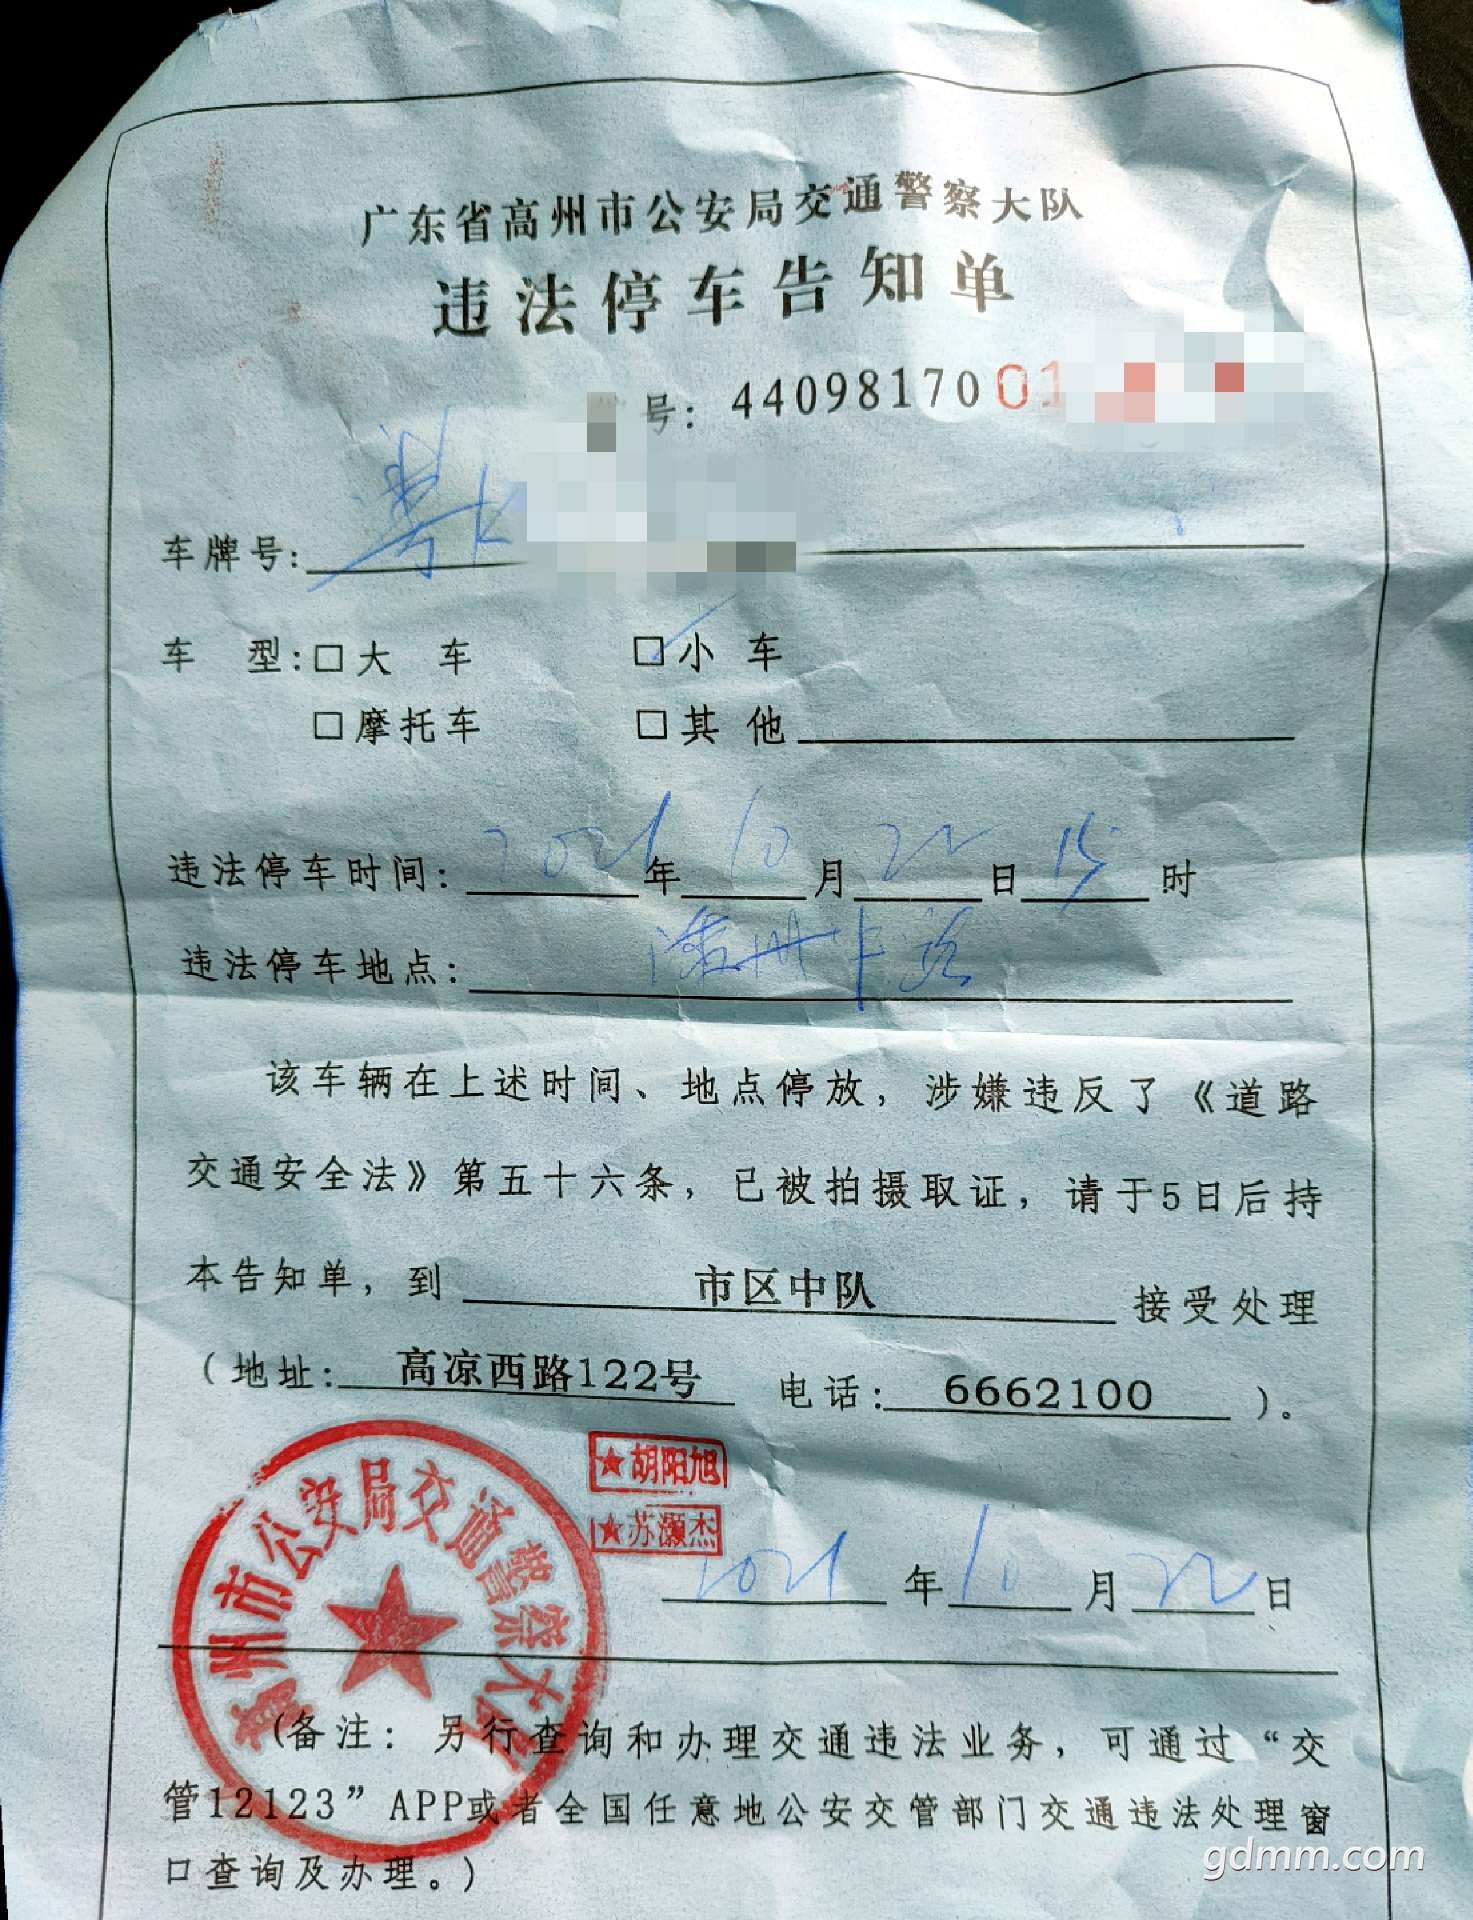 广东省高州市公安局交通警察大队
违法停车告知单
号: 4409817001
车牌号: 粤K
车 型: □大 车 □小 车
□摩托车 □其 他
违法停车时间: 2021年10月22日15时
违法停车地点: 潘州
该车辆在上述时间、地点停放, 涉嫌违反了《道路
交通安全法》第五十六条, 已被拍摄取证, 请于5日后持
本告知单, 到 市区中队 接受处理
(地址: 高凉西路122号 电话: 6662100 )。
★胡阳旭
★苏灏杰
高州市公安局交通警察大队
2021年10月22日
(备注: 另行查询和办理交通违法业务, 可通过“交
管12123”APP或者全国任意地公安交管部门交通违法处理窗
口查询及办理。)
gdmm.com